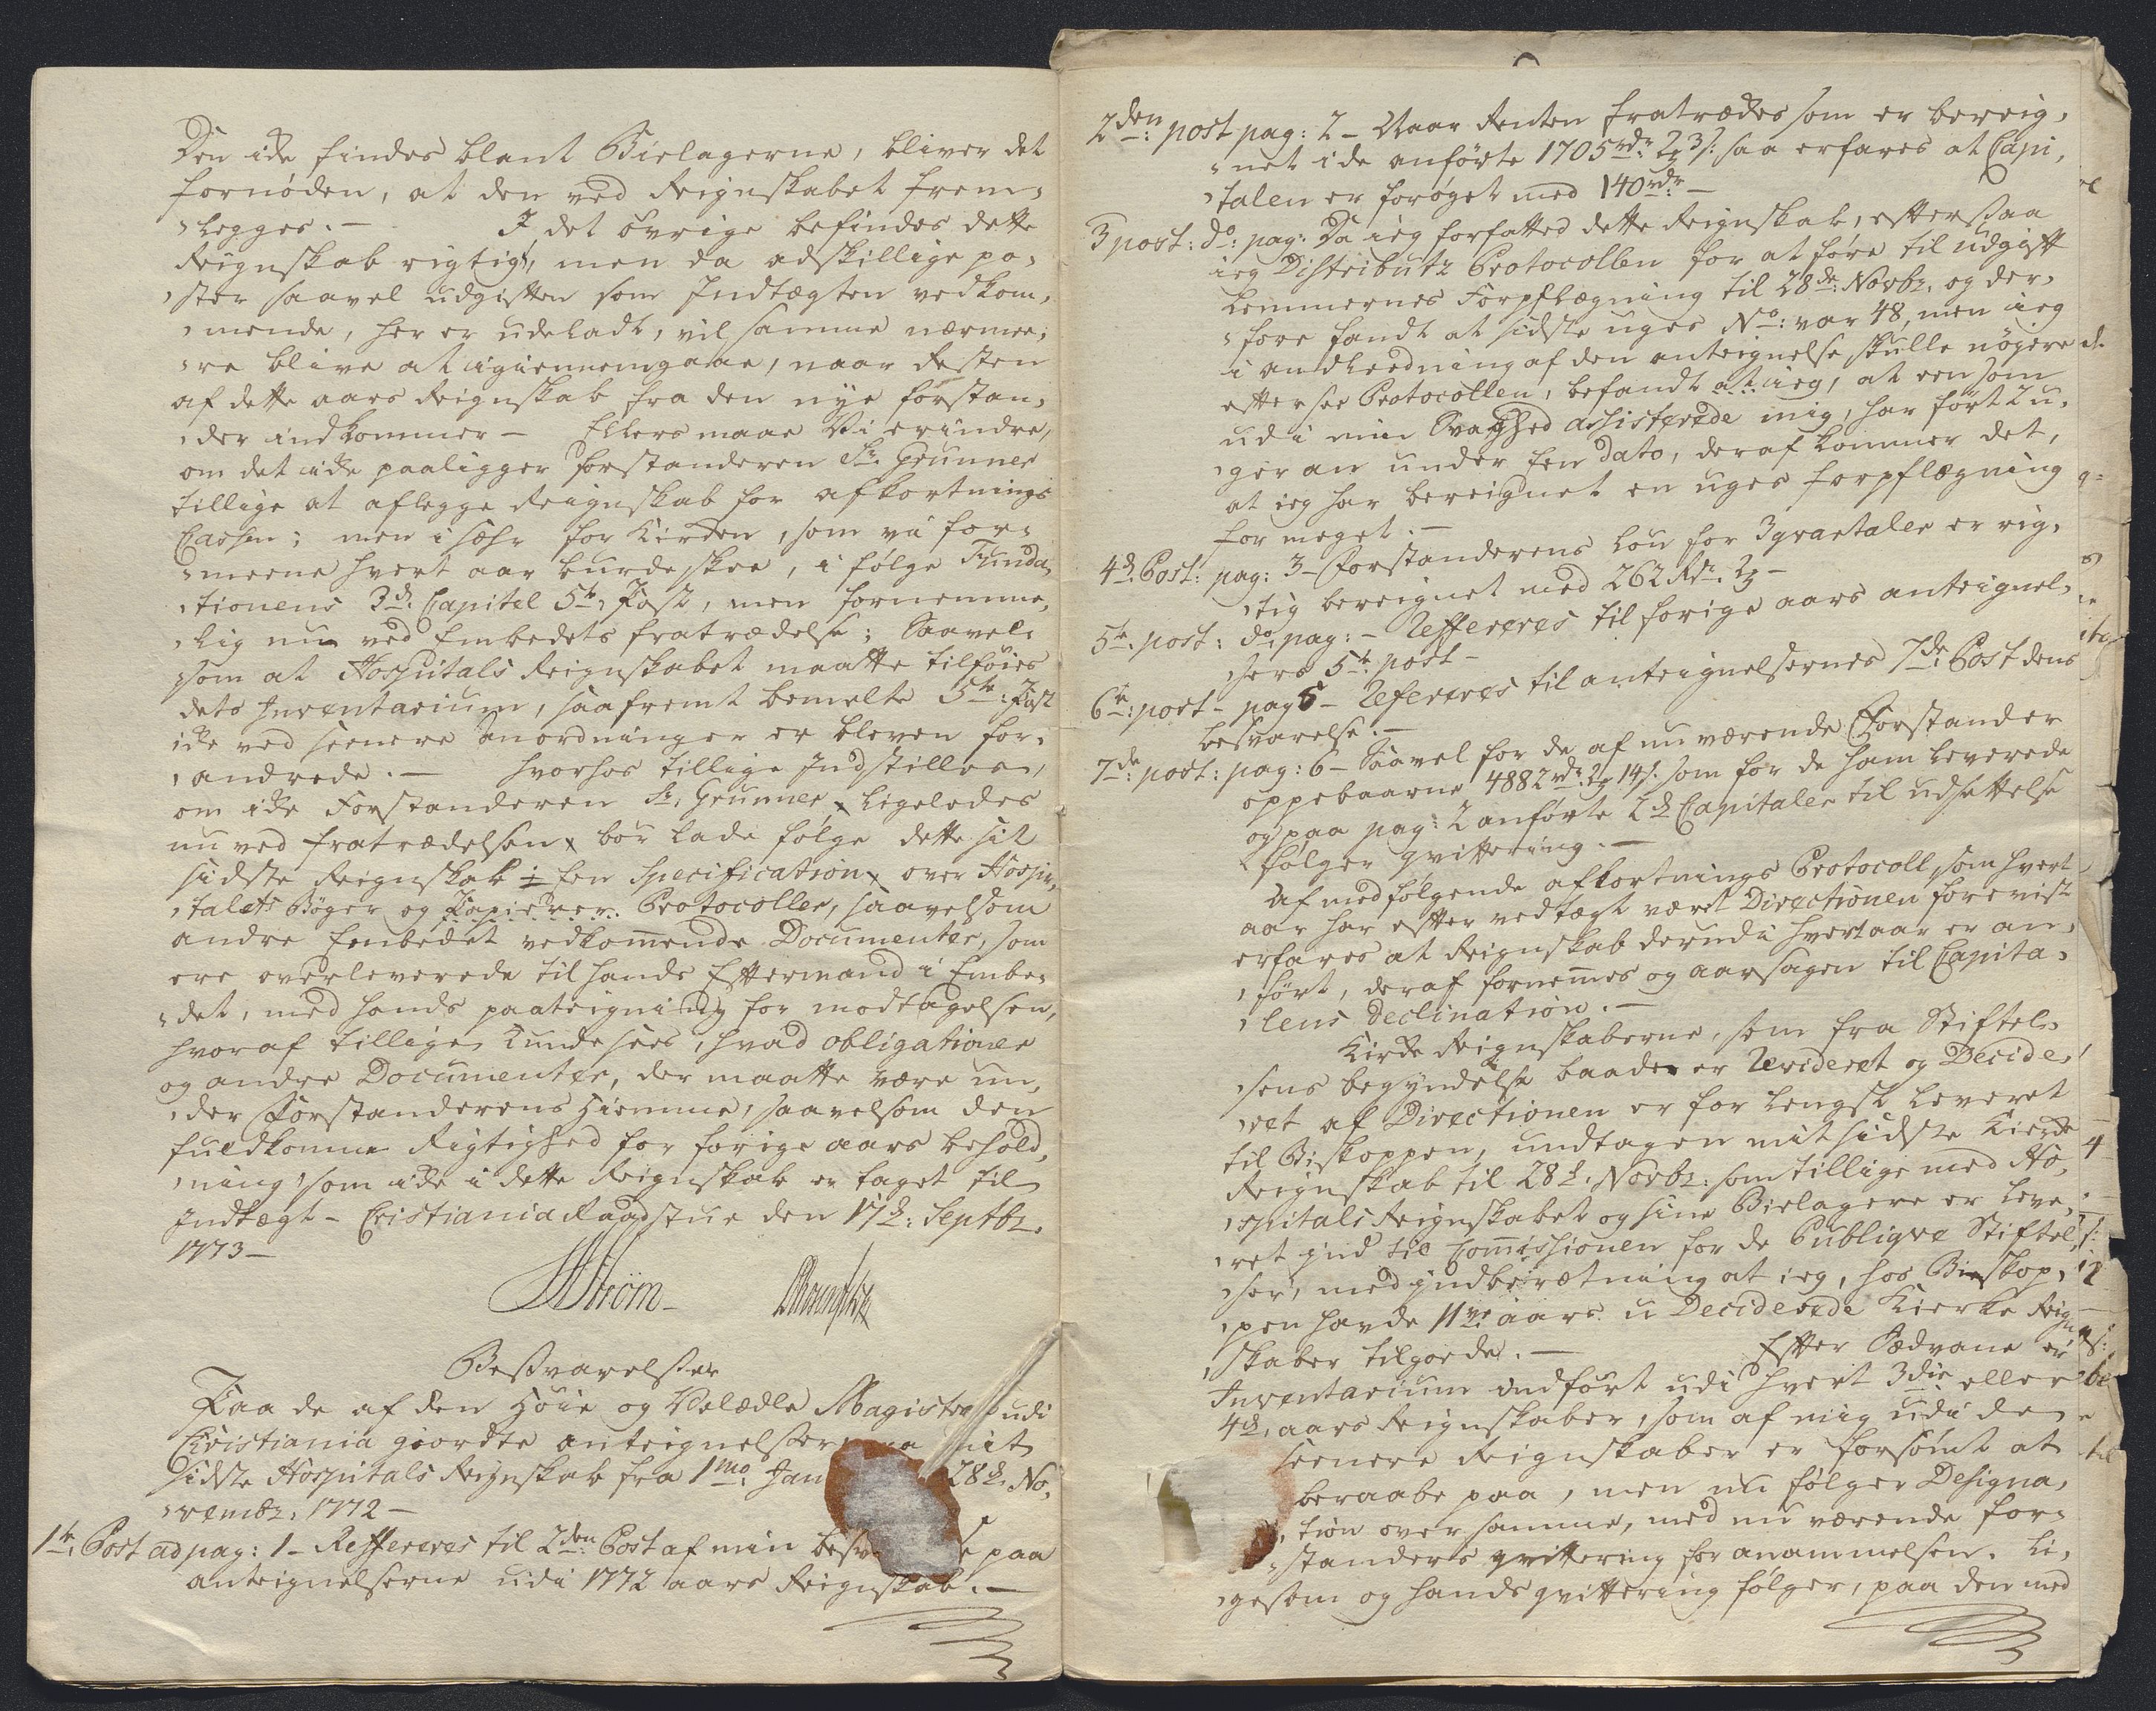 Den icke findes blant Bielagerne, bliver det
fornøden, at den ved Reignskabet frem-
legges. — I det øvrige befindes dette
Reignskab rigtigt, men da adskillige po-
ster saavel udgiften som Indtægten vedkom-
mende, her er udeladt, vil samme nærme-
re blive at igiennemgaae, naar Resten
af dette aars Reignskab fra den nye forstan-
der indkommer — Ellers maae Vi erindre,
om det icke paaligger forstanderen Sr. Grunner
tillige at aflegge Reignskab for afkortnings
Cassen; men i sæhr for Kircken, som vi for-
meene hvert aar burde skee, i følge Funda-
tionens 3d. Capitel 5te Post, men fornemme-
lig nu ved Embedets fratrædelse; Saavel-
som at Hospitals Reignskabet maatte tilføies
dets Inventarium, saafremt bemelte 5te: Post
icke ved seenere anordninger er bleven for-
andrede. — hvorhos tillige Indstilles,
om icke Forstanderen Sr. Grunner, ligeledes
nu ved fratrædelsen bør lade følge dette sit
sidste Reignskab een Specification over Hospi-
talets Bøger og Papierer. Protocoller, saavelsom
andre Embedet vedkommende Documenter, som
ere overleverede til hands Eftermand i Embe-
det, med hands paateigning for modtagelsen,
hvoraf tillige kunde sees, hvad obligationer
og andre Documenter, der maatte være un-
der Forstanderens Hiemme, saavelsom den
fuldkomne Rigtighed for forige aars behold-
ning som icke i dette Reignskab er taget til
Indtægt — Cristiania Raadstue den 17d: Septbr.
1773 —
Besvarelser
Paa de af den Høie og Velædle Magistrat udi
Christiania giordte anteignelser mit
sidste Hospitals Reignskab fra 1mo: Jan 28d. No-
vembr. 1772 —
1te. Post ad pag: 1 — Reffereres til 2den Post af min paa
anteignelserne udi 1772 aars Reignskab. —
2den: post pag: 2 — Naar Renten fratrækkes som er bereig-
net icke anførte 1705 rdr: 2 3s: saa erfares at Capi-
talen er forøget med 140 rdr —
3 post: do: pag: Da ieg forfatted dette Reignskab, eftersaa
ieg Distributz Protocollen for at føre til udgift
Lemmernes Forpflægning til 28de: Novbr. og der-
fore fandt at sidste uges No: var 48, men ieg
i andleedning af den anteignelse skulle nøgere
eftersee Protocollen, befandt at ieg, at een som
udi min Svaghed assisterede mig, har ført 2 u-
ger an under Een Dato, deraf kommer det,
at ieg har bereignet en uges forpflægning
for meget. —
4d. Post: pag: 3 — Forstanderens Løn for 3 qvartaler er rig-
tig bereignet med 262 Rdr. 2 —
5te. post: do. pag: — Reffereres til forige aars anteignel-
sers 5te post —
6te: post — pag 5 — Refereres til anteignelsernes 7de Post dens
besvarelse. —
7de: post: pag: 6 — Saavel for de af nu værende Forstander
oppebaarne 4882 rdr 2 14s. som for de ham leverede
og paa pag: 2 anførte 2de Capitaler til udsettelse
følger qvittering. —
Af medfølgende afkortnings Protocoll som hvert
aar har efter vedtægt været Directionen forevist
erfares at Reignskab derudi hvert aar er an-
ført, deraf fornemmes og aarsagen til Capita-
lens Declination. —
Kircke Reignskaberne, som fra Stiftel-
sens begyndelse baade er Revideret og Decide-
ret af Directionen er for lengst leveret
til Biskoppen, undtagen mit sidste Kircke
Reignskab til 28d. Novbr: som tillige med Ho-
spitals Reignskabet og sine Bielagere er leve-
ret ind til Commissionen for de Publiqve Stiftel-
ser, med indberætning at ieg, hos Biskop-
pen havde 11ve aars u Deciderede Kierke Reign-
skaber tilgode. — Efter Sædvane er
Inventarium indført udi hvert 3die eller
4de, aars Reignskaber, som af mig udi de
seenere Reignskaber er forsømt at
beraabe paa, men nu følger Designa-
tion over samme, med nu værende for-
standers qvittering for anammelsen. Li-
gesom og hands qvittering følger, paa den med